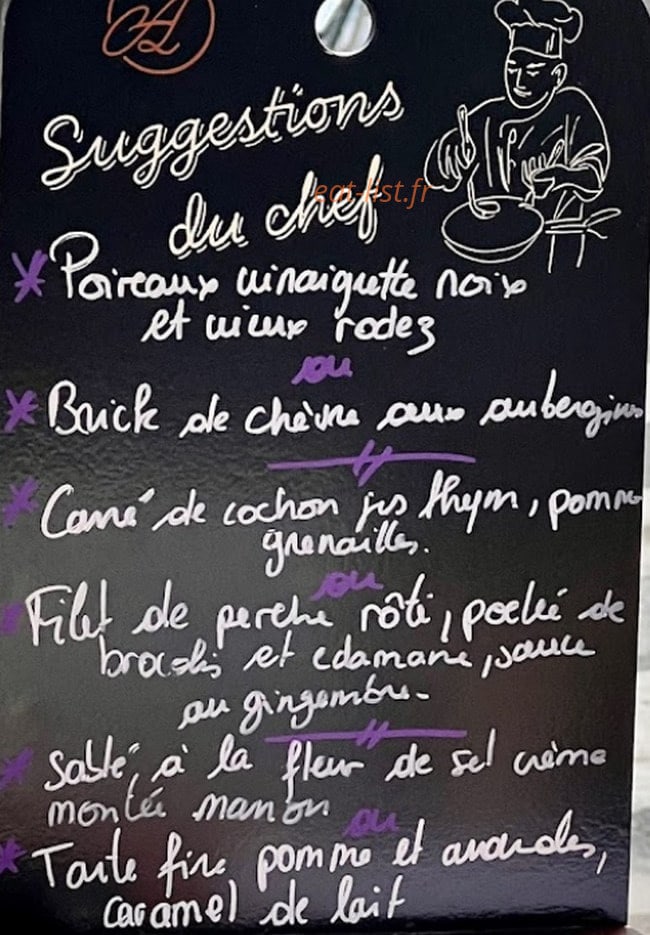 Suggestions
du chef
eat-list.fr
* Poireaux vinaigrette noix
et vieux rodez
ou
* Brick de chèvre aux aubergines
* Carré de cochon jus thym, pomme
grenailles.
ou
Filet de perche rôti, poelé de
brocolis et edamame, sauce
au gingembre.
* Sablé, à la fleur de sel crème
montée
ou
* Tarte fine pomme et amandes,
caramel de lait